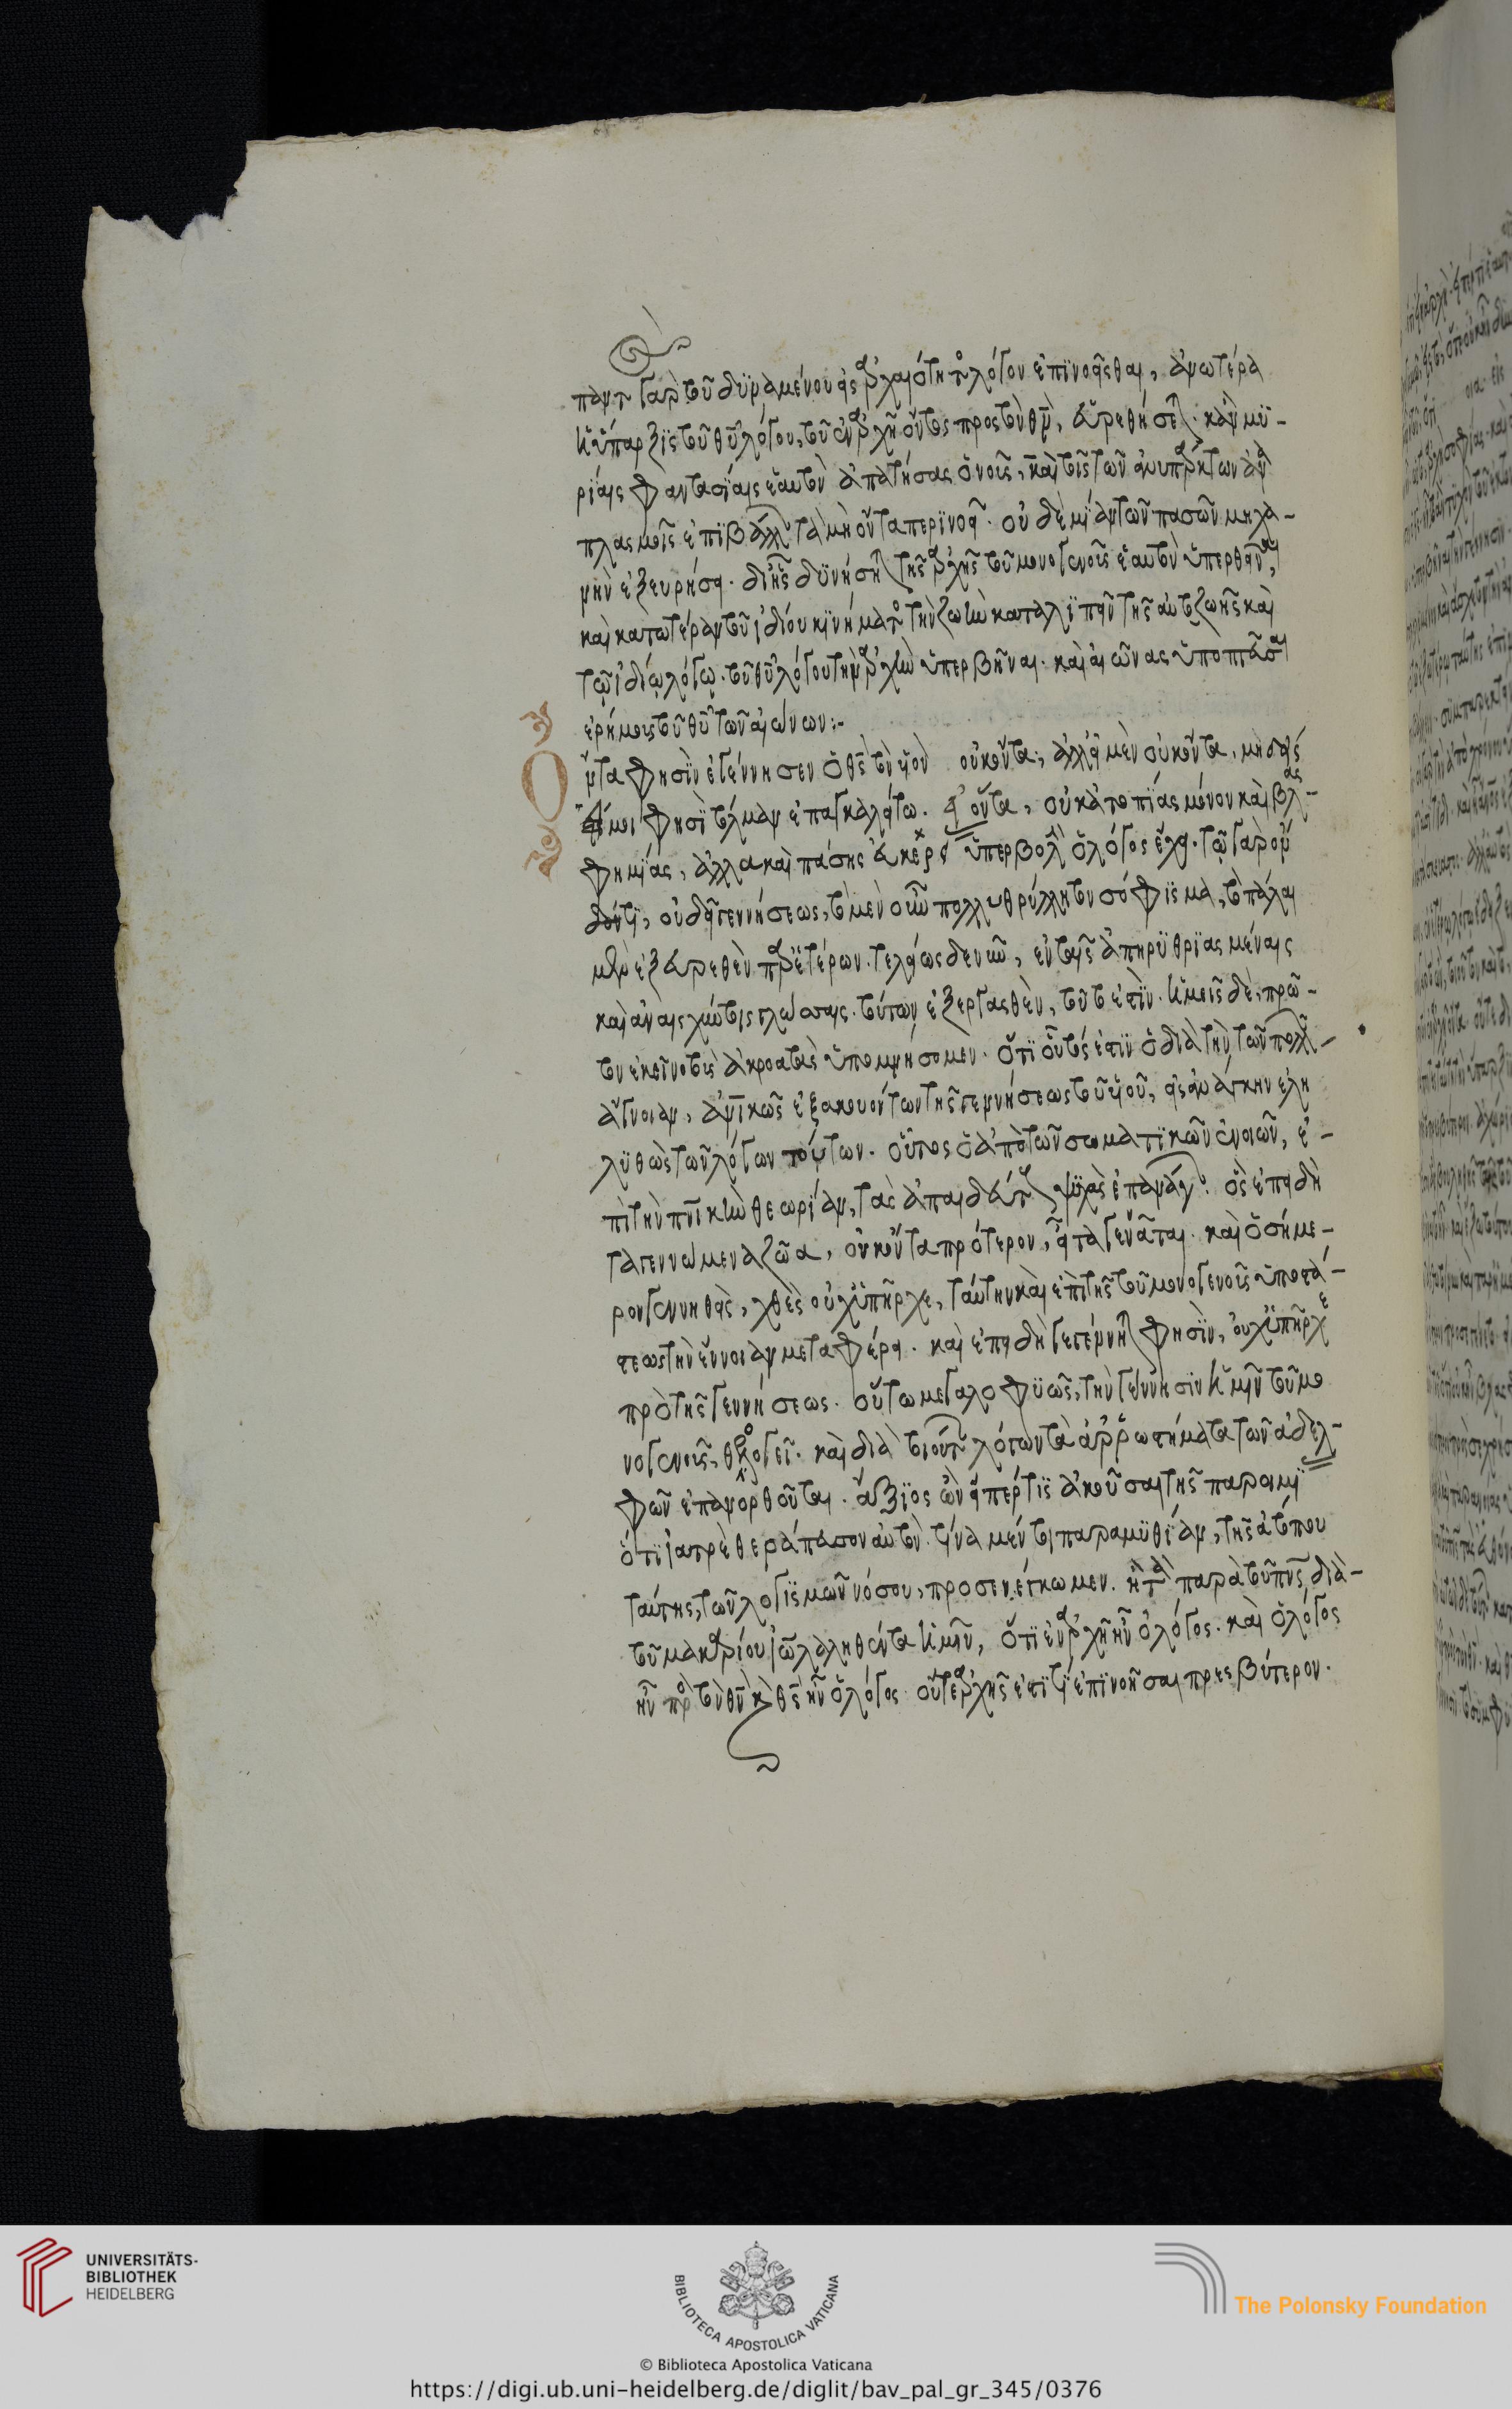 παντ(ὸς) γὰρ τοῦ δυναμένου εἰς ἀρχαιότητ(ος) λόγον ἐπινοεῖσθαι, ἀνωτέρα
ἡ ὕπαρξις τοῦ θῦ λόγου, τοῦ ἐν ἀρχῆ ὄντος πρὸς τὸν θν, εὑρεθήσετ(αι). κἂν μυ-
ρίαις φαντασίαις ἑαυτὸν ἀπατήσας ὁ νοῦς, καὶ τοῖς τῶν ἀνυπάρκτων ἀνα
πλασμοῖς ἐπιβάλλ(ων) τὰ μὴ ὄντα περινοεῖ. οὐδεμίαν τῶν πασῶν μηχα-
νὴν ἐξευρήσει. δι' ἧς δυνήσετ(αι) τῆς ἀρχῆς τοῦ μονογενοῦς ἑαυτὸν ὑπερθεῖναι,
καὶ κατωτέραν τοῦ ἰδίου κινήματ(ος) τὴν ζωὴν καταλιπεῖν τῆς αὐτοζωῆς καὶ
τῷ ἰδίῳ λόγῳ. τοῦ θῦ λόγου τὴν ἀρχὴν ὑπερβῆναι. καὶ αἰῶνας ὑποπτᾶσαι
ἐρήμους τοῦ θῦ τῶν αἰώνων:-
Ὄντα φησὶν ἐγέννησεν ὁ θς τὸν υἱὸν οὐκ ὄντα; ἀλλ' εἰ μὲν οὐκ ὄντα, μηδείς
μοι φησὶ τόλμαν ἐπαγκαλείτω. εἰ δ' ὄντα, οὐκ ἀτοπίας μόνον καὶ βλασ-
φημίας, ἀλλὰ καὶ πάσης ὑπερβολὴν ὁ λόγος ἔχει. τῷ γὰρ
ὄντι, οὐ δεῖ γεννήσεως, τὸ μὲν οὖν πολλυθρύλλητον σόφισμα, τὸ πάλαι
μὲν ἐξευρεθὲν παρ' ἑτέρων. τελείως δὲ νῦν, ἐν ταῖς ἀπηρυθριασμέναις
καὶ ἀναισχύντοις γλώσσαις. τούτων ἐξεργασθὲν, τοῦτό ἐστιν. ἡμεῖς δὲ, πρῶ-
τον ἐκεῖνο τοὺς ἀκροατὰς ὑπομνήσομεν. ὅτι οὗτός ἐστιν ὁ διὰ τὴν τῶν πολλῶν
ἄγνοιαν, ἀν̅ικῶς ἐξακουόντων τῆς γεννήσεως τοῦ υἱοῦ, εἰς ἀνάγκην ἐλη
λυθὼς τῶν λόγων τούτων. οὗτος ὁ ἀπὸ τῶν σωματικῶν ἐννοιῶν, ἐ-
πὶ τὴν πνικὴν θεωρίαν, τὰς ἀπαιδεύτ(ους) ψυχὰς ἐπανάγ(ων). ὃς ἐπειδὴ
τὰ γεννώμενα ζῶα, οὐκ ὄντα πρότερον, εἶτα γεννᾶται. καὶ ὁ σήμε-
ρον γεννηθεὶς, χθὲς οὐχ ὑπῆρχε, ταύτην καὶ ἐπὶ τῆς τοῦ μονογενοῦς ὑποστά-
σεως τὴν ἔννοιαν μεταφέρει. καὶ ἐπειδὴ γεγέννητ(αι) φησὶν, οὐχ ὑπῆρχε
πρὸ τῆς γεννήσεως. οὕτω μεγαλοφυῶς, τὴν γέννησιν ἡμῖν τοῦ μο
νογενοῦς, θεολογεῖ. καὶ διὰ τοιούτ(ων) λόγων τὰ ἀρρωστήματα τῶν ἀδελ-
φῶν ἐπανορθοῦται. ἄξιος ὢν εἴπερ τις ἀκοῦσαι τῆς παροιμι
ὅτι ἰατρὲ θεράπευσον αὑτόν. τίνα μέντοι παραμυθίαν, τῆς ἀτόπου
ταύτης, τῶν λογισμῶν νόσου, προσενέγκωμεν. ἢ τὰ παρὰ τοῦ πνς διὰ-
τοῦ μακαρίου ἰῶ λαληθέντα ἡμῖν, ὅτι ἐν ἀρχῆ ἦν ὁ λόγος. καὶ ὁ λόγος
ἦν πρὸς τὸν θν κ(αὶ) θς ἦν ὁ λόγος. οὔτε ἀρχῆς ἔστι τί ἐπινοῆσαι πρεσβύτερον.
UNIVERSITÄTS-
BIBLIOTHEK
HEIDELBERG
BIBLIOTECA APOSTOLICA VATICANA
The Polonsky Foundation
© Biblioteca Apostolica Vaticana
https://digi.ub.uni-heidelberg.de/diglit/bav_pal_gr_345/0376